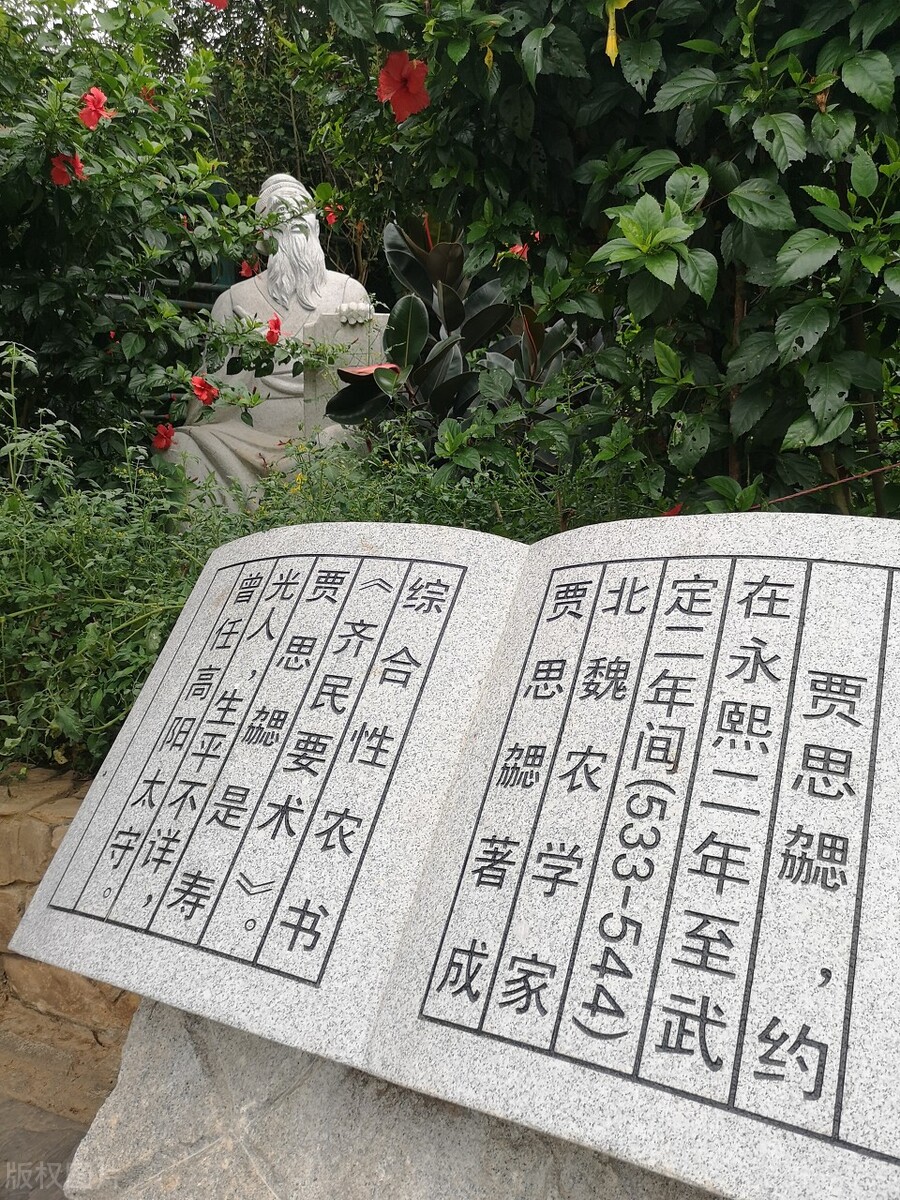 贾思勰，约
在永熙二年至武
定二年间(533-544)
北魏农学家
贾思勰著成
综合性农书
《齐民要术》。
贾思勰是寿
光人，生平不详，
曾任高阳太守。
版权图片